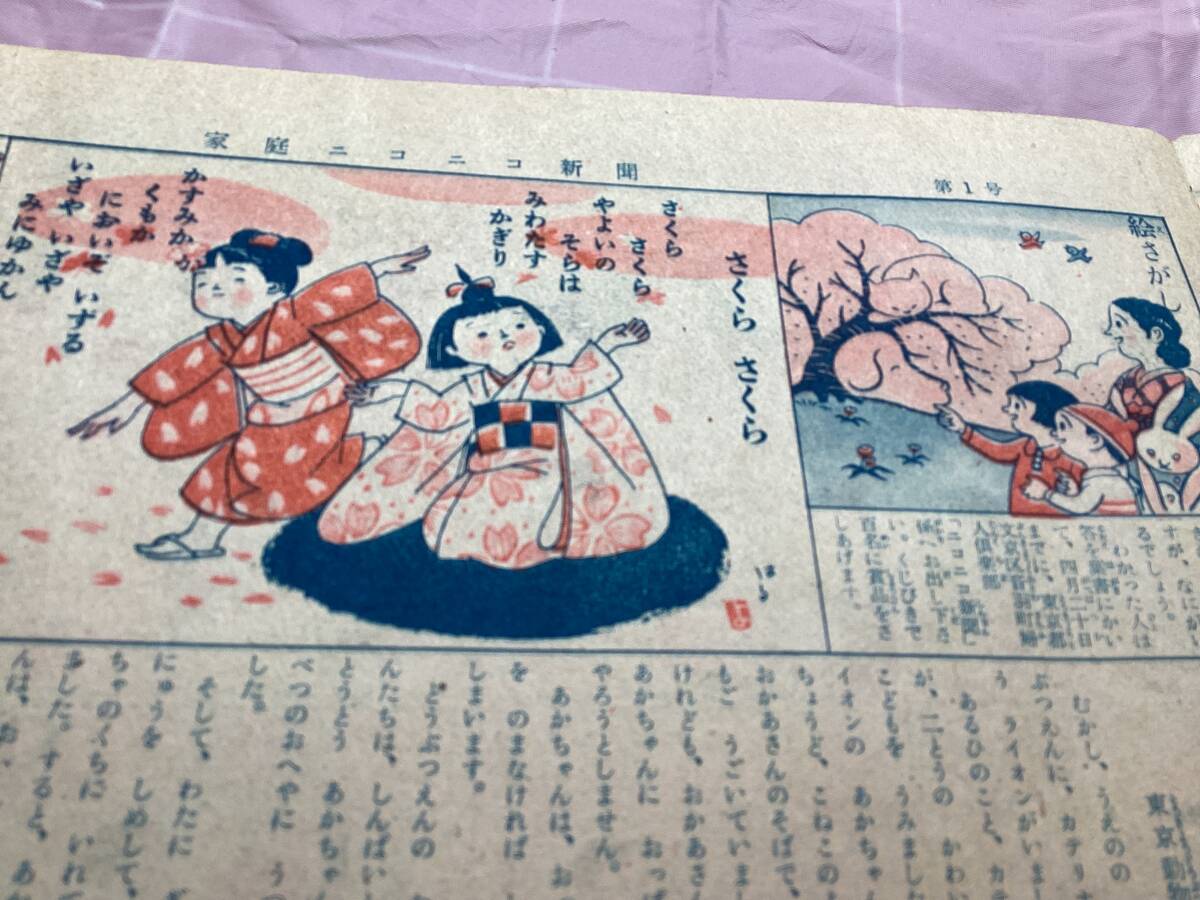 家庭ニコニコ新聞
第1号
絵さがし
すが、なにが
るでしょう。
わかった人は
答を葉書にかい
て、四月二十日
までに、東京都
文京区音羽町婦
人倶楽部
ニコニコ新聞」
係へお出し下さ
い。くじびきで
百名に賞品をさ
しあげます。
さくら さくら
さくら
さくら
やよいの
そらは
みわたす
かぎり
かすみか
くもか
においぞ いずる
いざや いざや
みにゆかん
はる
東京動物
むかし、うえのの
ぶつえんに、カテリナ
う ライオンがいまし
あるひのこと、カテ
が、二とうの かわい
こどもを うみました
イオンの あかちゃん
ちょうど、こねこのよ
おかあさんのそばで、
もご うごいていまし
けれども、おかあさん
あかちゃんに おっぱ
やろうとしません。
あかちゃんは、お
を のまなければ
しまいます。
どうぶつえんの
んたちは、しんぱい
とうとう あかちゃ
べつのおへやに うつ
した。
そして、わたに ぎ
にゅうを しめして、
ちゃのくちに いれ
ました。すると、あ
んは、お